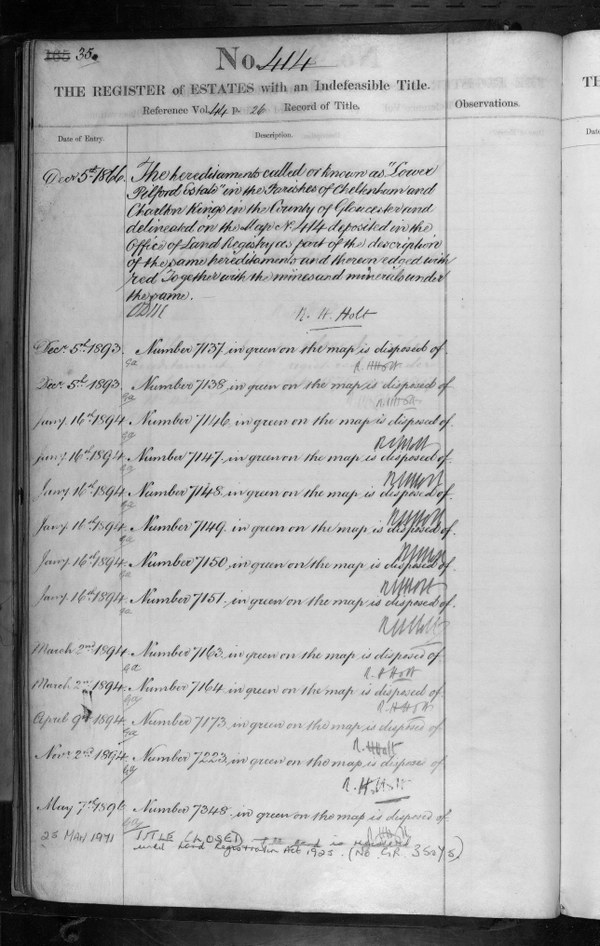 165 35.
No. 414
THE REGISTER of ESTATES with an Indefeasible Title.
Reference Vol. 44 p. 26 Record of Title.
Observations.
Date of Entry.
Description.
Decr 5th 1866. The hereditaments called or known as "Lower
Pilford Estate" in the Parishes of Cheltenham and
Charlton Kings in the County of Gloucester and
delineated on the Map No. 414 deposited in the
Office of Land Registry as part of the description
of the same hereditaments and thereon edged with
red Together with the mines and minerals under
the same.
R. H. Holt
Decr 5th 1893. Number 7137, in green on the map is disposed of.
R. H Holt
Decr 5th 1893. Number 7138, in green on the map is disposed of.
R H Holt
Jany 16th 1894. Number 7146, in green on the map is disposed of.
R H Holt
Jany 16th 1894. Number 7147, in green on the map is disposed of.
R H Holt
Jany 16th 1894. Number 7148, in green on the map is disposed of.
R H Holt
Jany 16th 1894. Number 7149, in green on the map is disposed of.
R H Holt
Jany 16th 1894. Number 7150, in green on the map is disposed of.
R H Holt
Jany 16th 1894. Number 7151, in green on the map is disposed of.
R H Holt
March 2nd 1894. Number 7163, in green on the map is disposed of.
R. H Holt
March 2nd 1894. Number 7164, in green on the map is disposed of.
R. H Holt
April 9th 1894. Number 7173, in green on the map is disposed of
R. H Holt
Novr 2nd 1894. Number 7223, in green on the map is disposed of
R. H. Holt
May 7th 1896. Number 7348, in green on the map is disposed of.
R H Holt
25 MAY 1971 TITLE CLOSED land is registered
under Land Registration Act 1925. (No. GR. 35075)
TH
Da